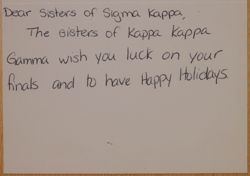 Dear Sisters of Sigma Kappa,
The sisters of Kappa Kappa
Gamma wish you luck on your
finals and to have Happy Holidays.